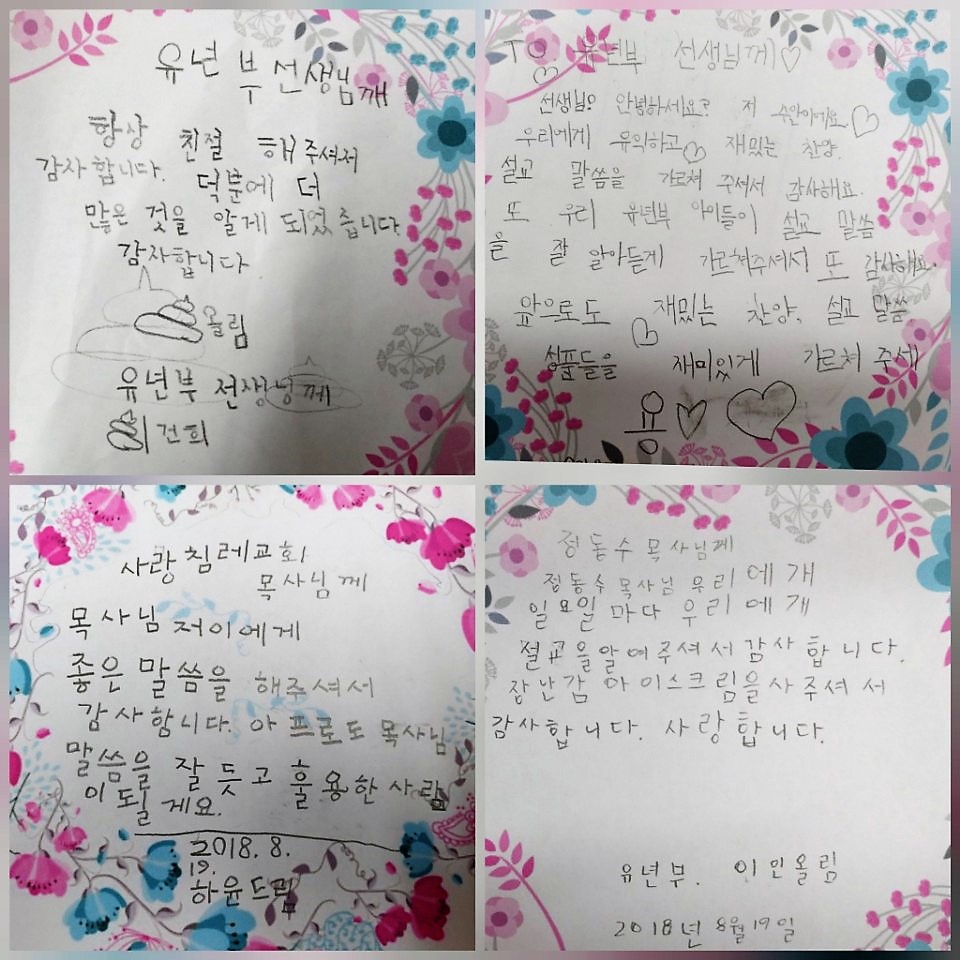 유년부선생님께
항상 친절 해주셔서
감사합니다. 덕분에 더
많은 것을 알게 되었습니다
감사합니다
올림
유년부 선생님께
건희
TO. 유년부 선생님께♡
선생님! 안녕하세요? 저 수안이에요
우리에게 유익하고 재밌는 찬양,
설교 말씀을 가르쳐 주셔서 감사해요.
또 우리 유년부 아이들이 설교 말씀
을 잘 알아듣게 가르쳐주셔서 또 감사해요.
앞으로도 재밌는 찬양, 설교 말씀,
성품들을 재미있게 가르쳐 주세
용♡♡
사랑침레교회
목사님께
목사님 저이에게
좋은 말씀을 해주셔서
감사합니다. 아프로도 목사님
말씀을 잘 듯고 훌용한 사람
이 될게요.
2018. 8.
19.
하윤드림
정동수 목사님께
정동수 목사님 우리에개
일요일 마다 우리에개
설교을알여주셔서감사합니다.
장난감 아이스크림을사주셔서
감사합니다. 사랑합니다.
유년부. 이인올림
2018년 8월 19일